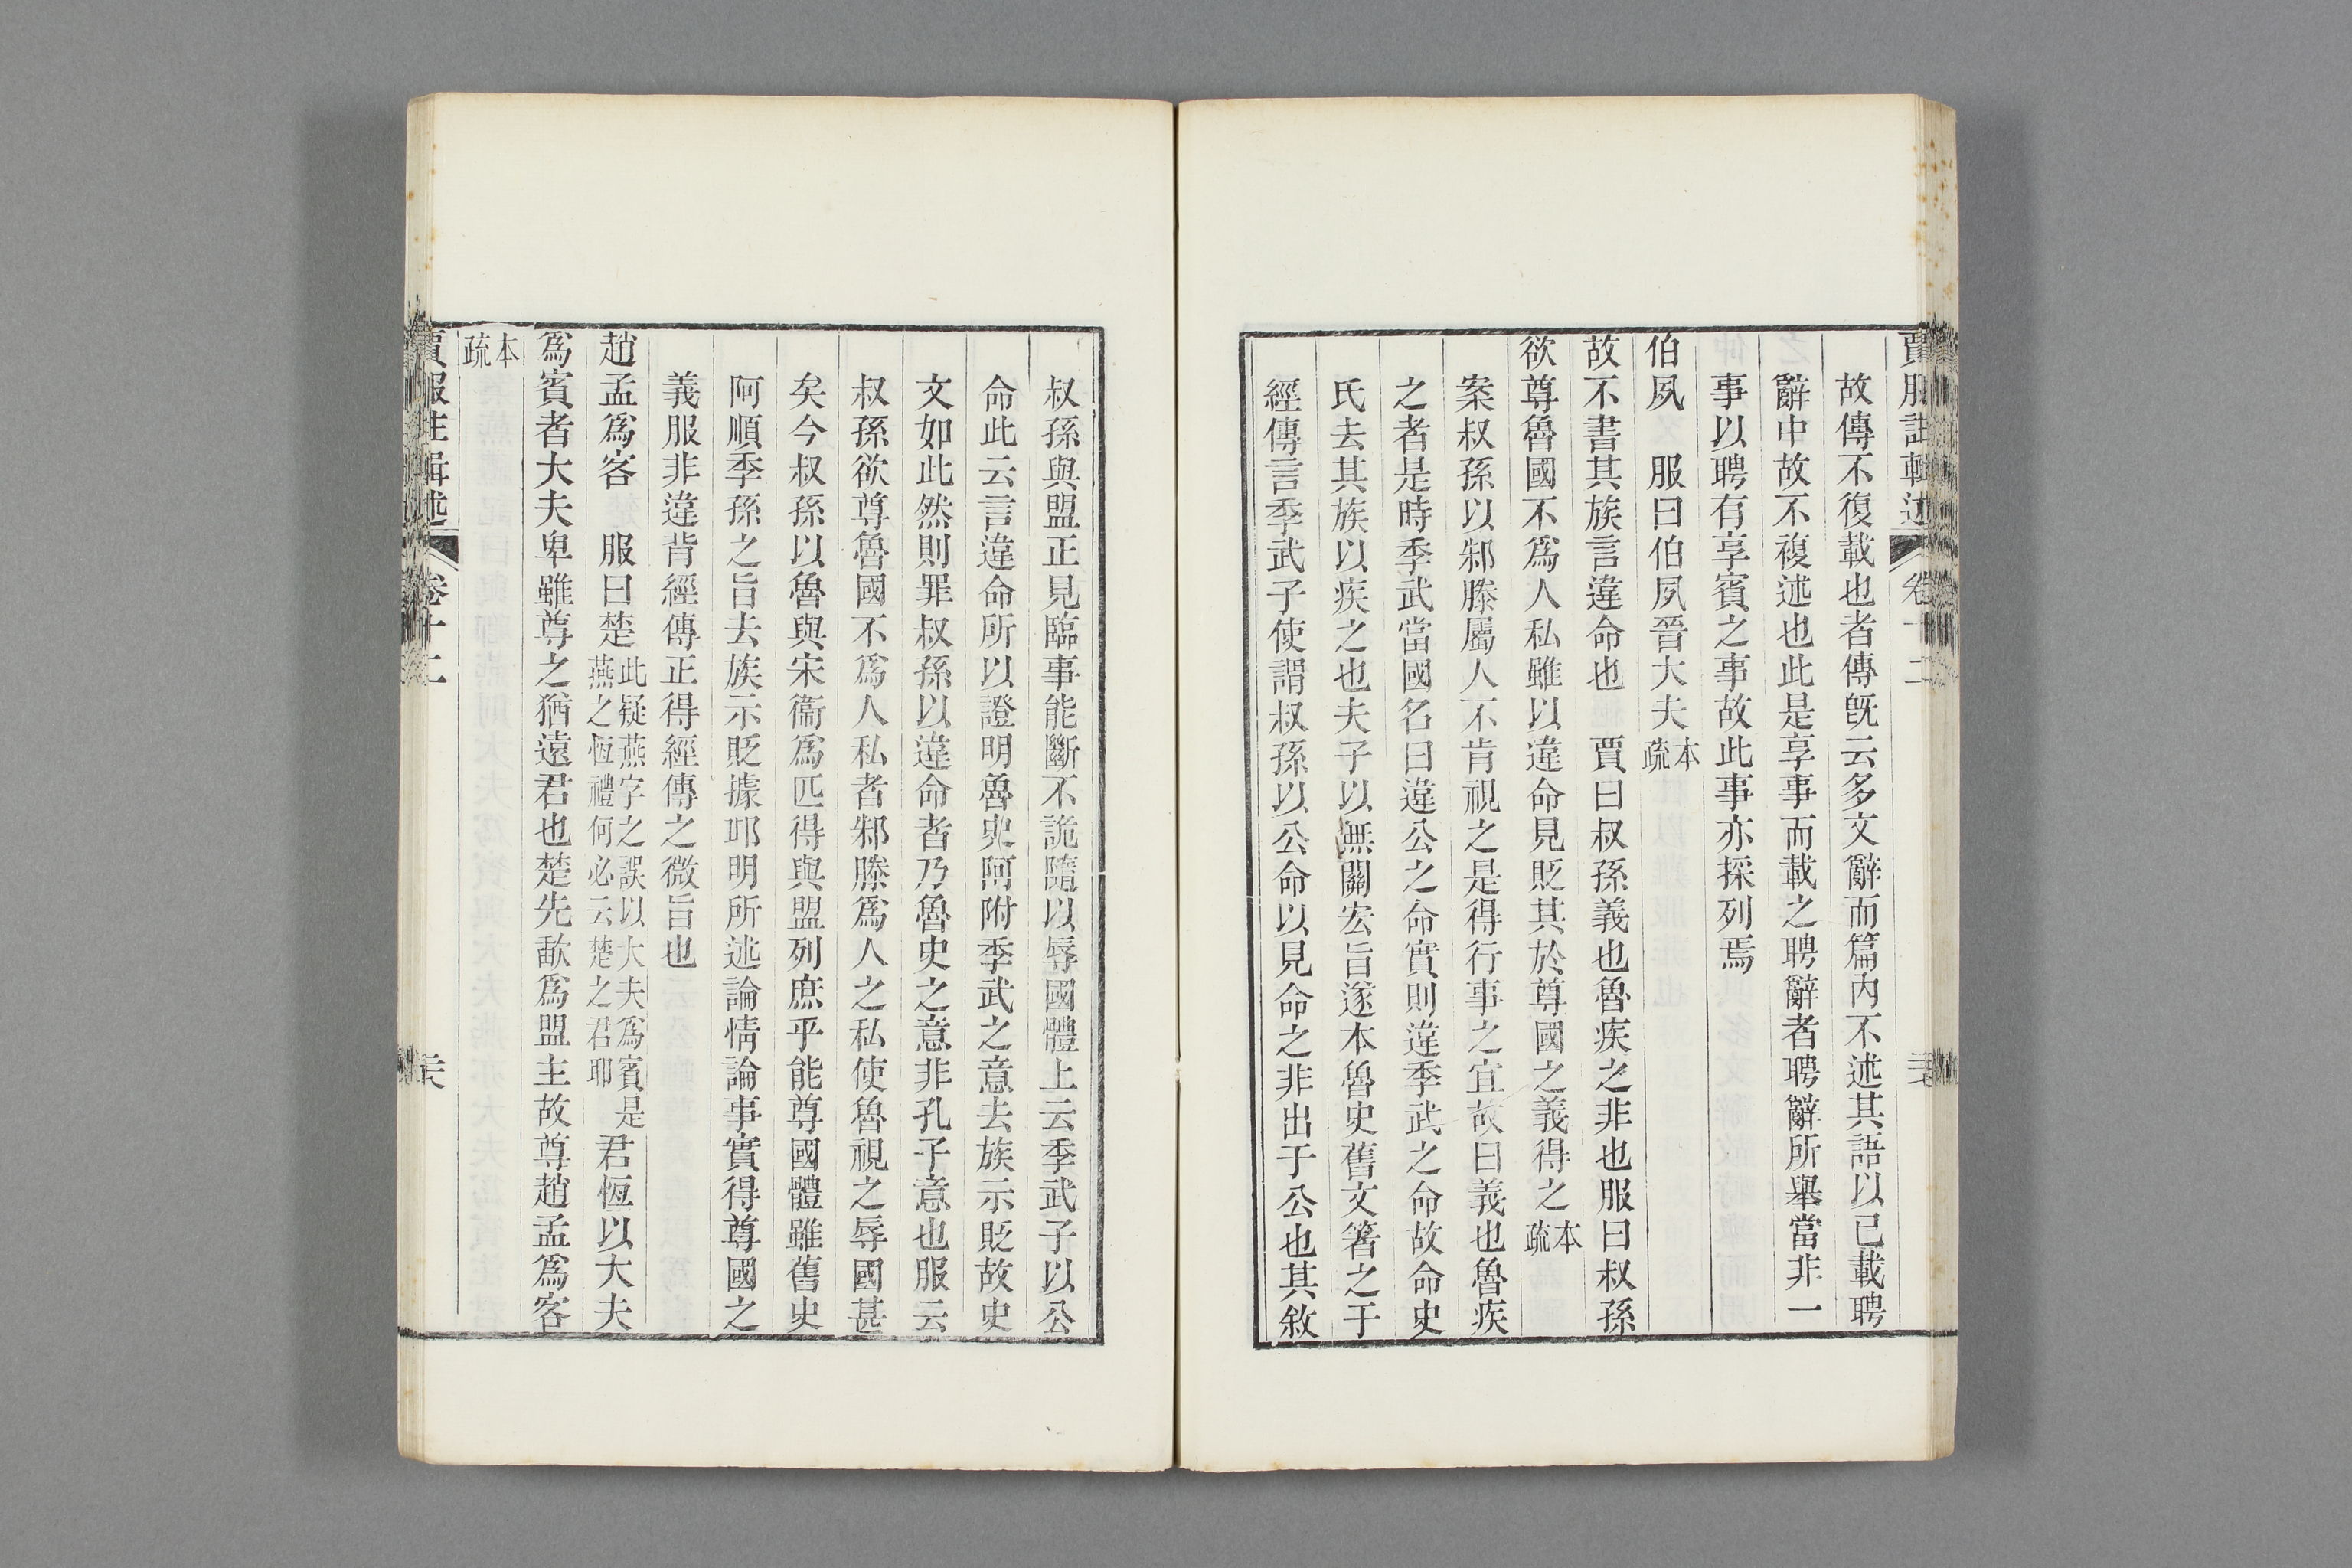 賈服註輯述 卷十二
故傳不復載也者傳旣云多文辭而篇內不述其語以已載聘
辭中故不複述也此是享事而載之聘辭者聘辭所舉當非一
事以聘有享賓之事故此事亦採列焉
伯夙 服曰伯夙晉大夫本疏
故不書其族言違命也 賈曰叔孫義也魯疾之非也服曰叔孫
欲尊魯國不爲人私雖以違命見貶其於尊國之義得之本疏
案叔孫以邾滕屬人不肯視之是得行事之宜故曰義也魯疾
之者是時季武當國名曰違公之命實則違季武之命故命史
氏去其族以疾之也夫子以無關宏旨遂本魯史舊文箸之于
經傳言季武子使謂叔孫以公命以見命之非出于公也其敘
叔孫與盟正見臨事能斷不詭隨以辱國體上云季武子以公
命此云言違命所以證明魯史阿附季武之意去族示貶故史
文如此然則罪叔孫以違命者乃魯史之意非孔子意也服云
叔孫欲尊魯國不爲人私者邾滕爲人之私使魯視之辱國甚
矣今叔孫以魯與宋衞爲匹得與盟列庶乎能尊國體雖舊史
阿順季孫之旨去族示貶據邱明所述論情論事實得尊國之
義服非違背經傳正得經傳之微旨也
趙孟爲客 服曰楚此疑燕字之誤以大夫爲賓是燕之恆禮何必云楚之君耶君恆以大夫
爲賓者大夫卑雖尊之猶遠君也楚先歃爲盟主故尊趙孟爲客
本疏
賈服注輯述 卷十二 六